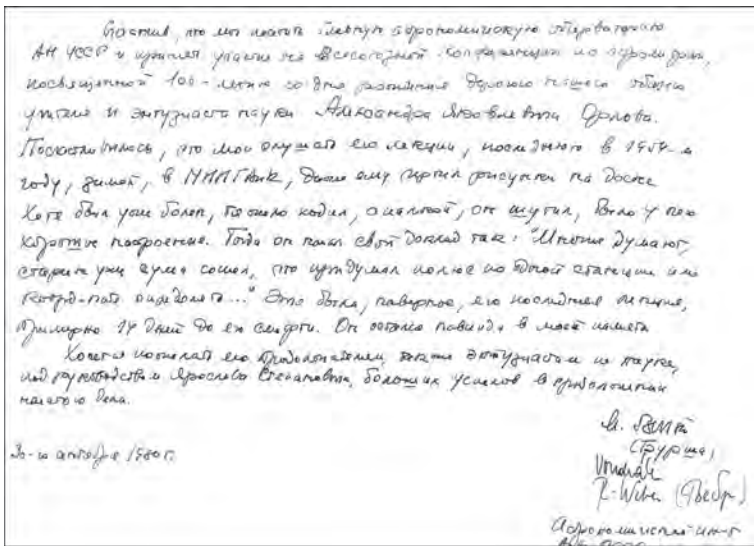 Счастлив, что мог посетить Главную астрономическую обсерваторию
АН УССР и принять участие на Всесоюзной конференции по
посвященной 100-летию со дня рождения дорогого нашего
учителя и энтузиаста науки Александра Яковлевича Орлова.
Посчастливилось, что мог слушать его лекции, последнюю в 1954-м
году, зимой, в МИИГАиК, даже ему чертил рисунки на доске
Хотя был уже болен, ходил, с палкой, он шутил, было у него
хорошее настроение. Тогда он начал свой доклад так: "Многие думают,
старик уже с ума сошел, что придумал полюс по одной станции или
определять..." Это была, наверное, его последняя лекция,
примерно 14 дней до его смерти. Он остался навсегда в моей памяти
Хочется пожелать его продолжателям, таким энтузиастам науке,
под руководством Ярослава Степановича, больших успехов в продолжении
начатого дела.
30-го октября 1980 г.
Vondrák
R. Weber (Вебр)
Астрономический ин-т